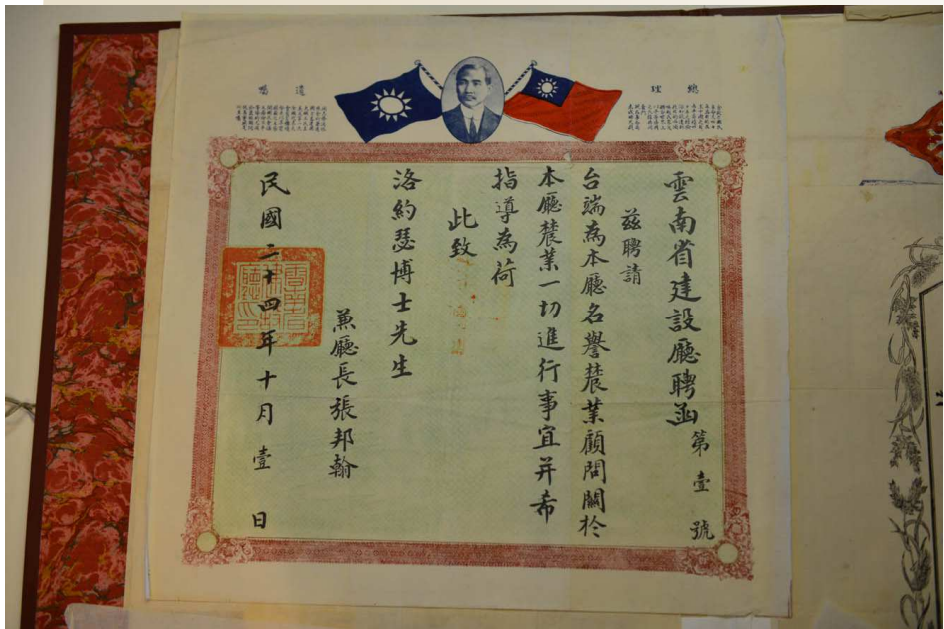 總理
遺囑
雲南省建設廳聘函第壹號
茲聘請
台端為本廳名譽農業顧問關於
本廳農業一切進行事宜并希
指導為荷
此致
洛約瑟博士先生
兼廳長張邦翰
民國二十四年十月壹日